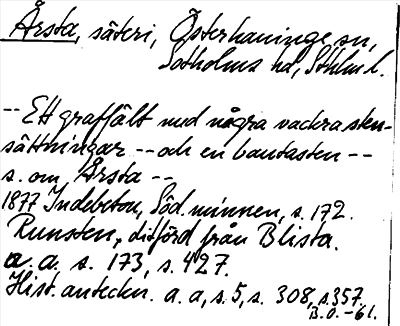 Årsta, säteri, Österhaninge sn,
Sotholms hd, Sthlm l.
-- Ett graffält med några vackra sten-
sättningar -- och en bautasten --
s. om Årsta --
1877 Indebetou, Söd. minnen, s. 172.
Runsten, ditförd från Blista.
a. a. s. 173, s. 427.
Hist. anteckn. a. a, s. 5, s. 308, s. 357.
B.O. -61.